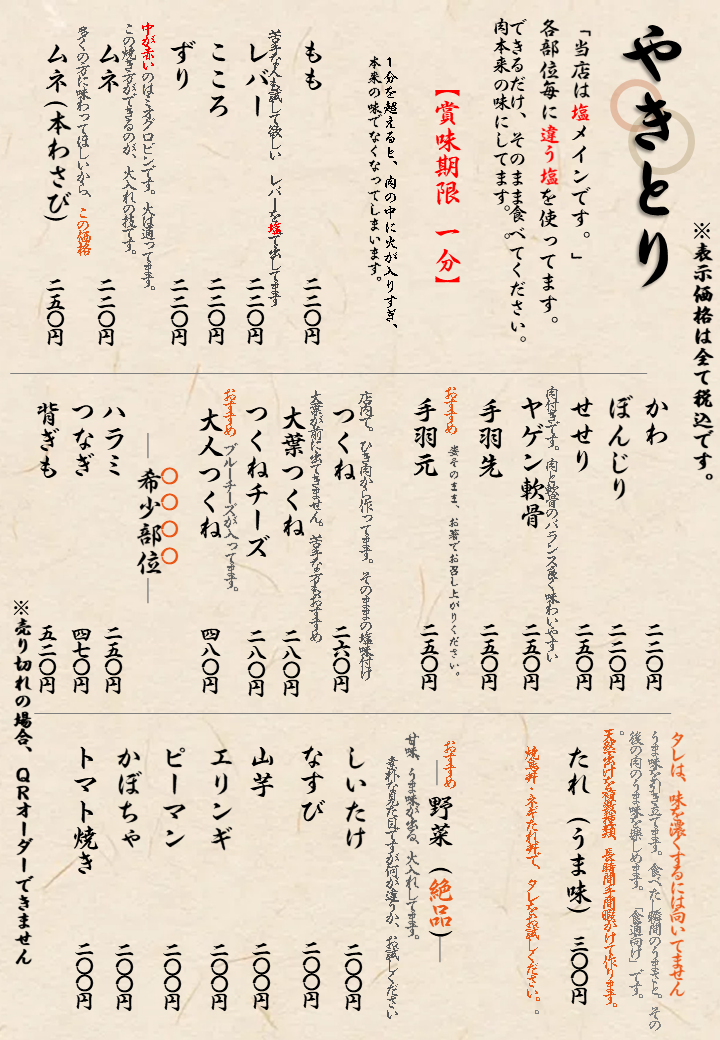 ※表示価格は全て税込です。
やきとり
「当店は塩メインです。」
各部位毎に違う塩を使ってます。
できるだけ、そのまま食べてください。
肉本来の味にしてます。
【賞味期限 一分】
1分を超えると、肉の中に火が入りすぎ、
本来の味でなくなってしまいます。
もも 二二〇円
苦手な人も試して欲しい レバーを塩で出してます
レバー 二二〇円
こころ 二二〇円
ずり 二二〇円
中が赤いのはミオグロビンです。火は通ってます。
この焼き方ができるのが、火入れの技です。
ムネ 二二〇円
多くの方に味わってほしいから、この価格
ムネ(本わさび) 二五〇円
かわ 二二〇円
ぼんじり 二二〇円
せせり 二五〇円
肉付きです。肉と軟骨のバランス良く味わいやすい
ヤゲン軟骨 二五〇円
手羽先 二五〇円
おすすめ 姿そのまま、お箸でお召し上がりください。
手羽元 二五〇円
店内で、ひき肉から作ってます。そのままの塩味付け
つくね 二六〇円
大葉が前に出てきません。苦手な方もおすすめ
大葉つくね 二八〇円
つくねチーズ 二八〇円
おすすめ ブルーチーズが入ってます。
大人つくね 四八〇円
〇〇〇〇
希少部位
ハラミ 二五〇円
つなぎ 四七〇円
背ぎも 五二〇円
タレは、味を濃くするには向いてません
うま味を引き立てます。食べたし瞬間のうまさと、その
後の肉のうま味を楽しめます。「食通向け」です。
天然出汁を複数種類、長時間手間暇かけて作ります。
たれ(うま味) 三〇〇円
焼鳥丼・ネギたれ丼で、タレをお試しください。
おすすめ
野菜(絶品)
甘味、うま味が出る、火入れしてます。
素朴な見た目ですが何が違うか、お試しください
しいたけ 二〇〇円
なすび 二〇〇円
山芋 二〇〇円
エリンギ 二〇〇円
ピーマン 二〇〇円
かぼちゃ 二〇〇円
トマト焼き 二〇〇円
※売り切れの場合、QRオーダーできません